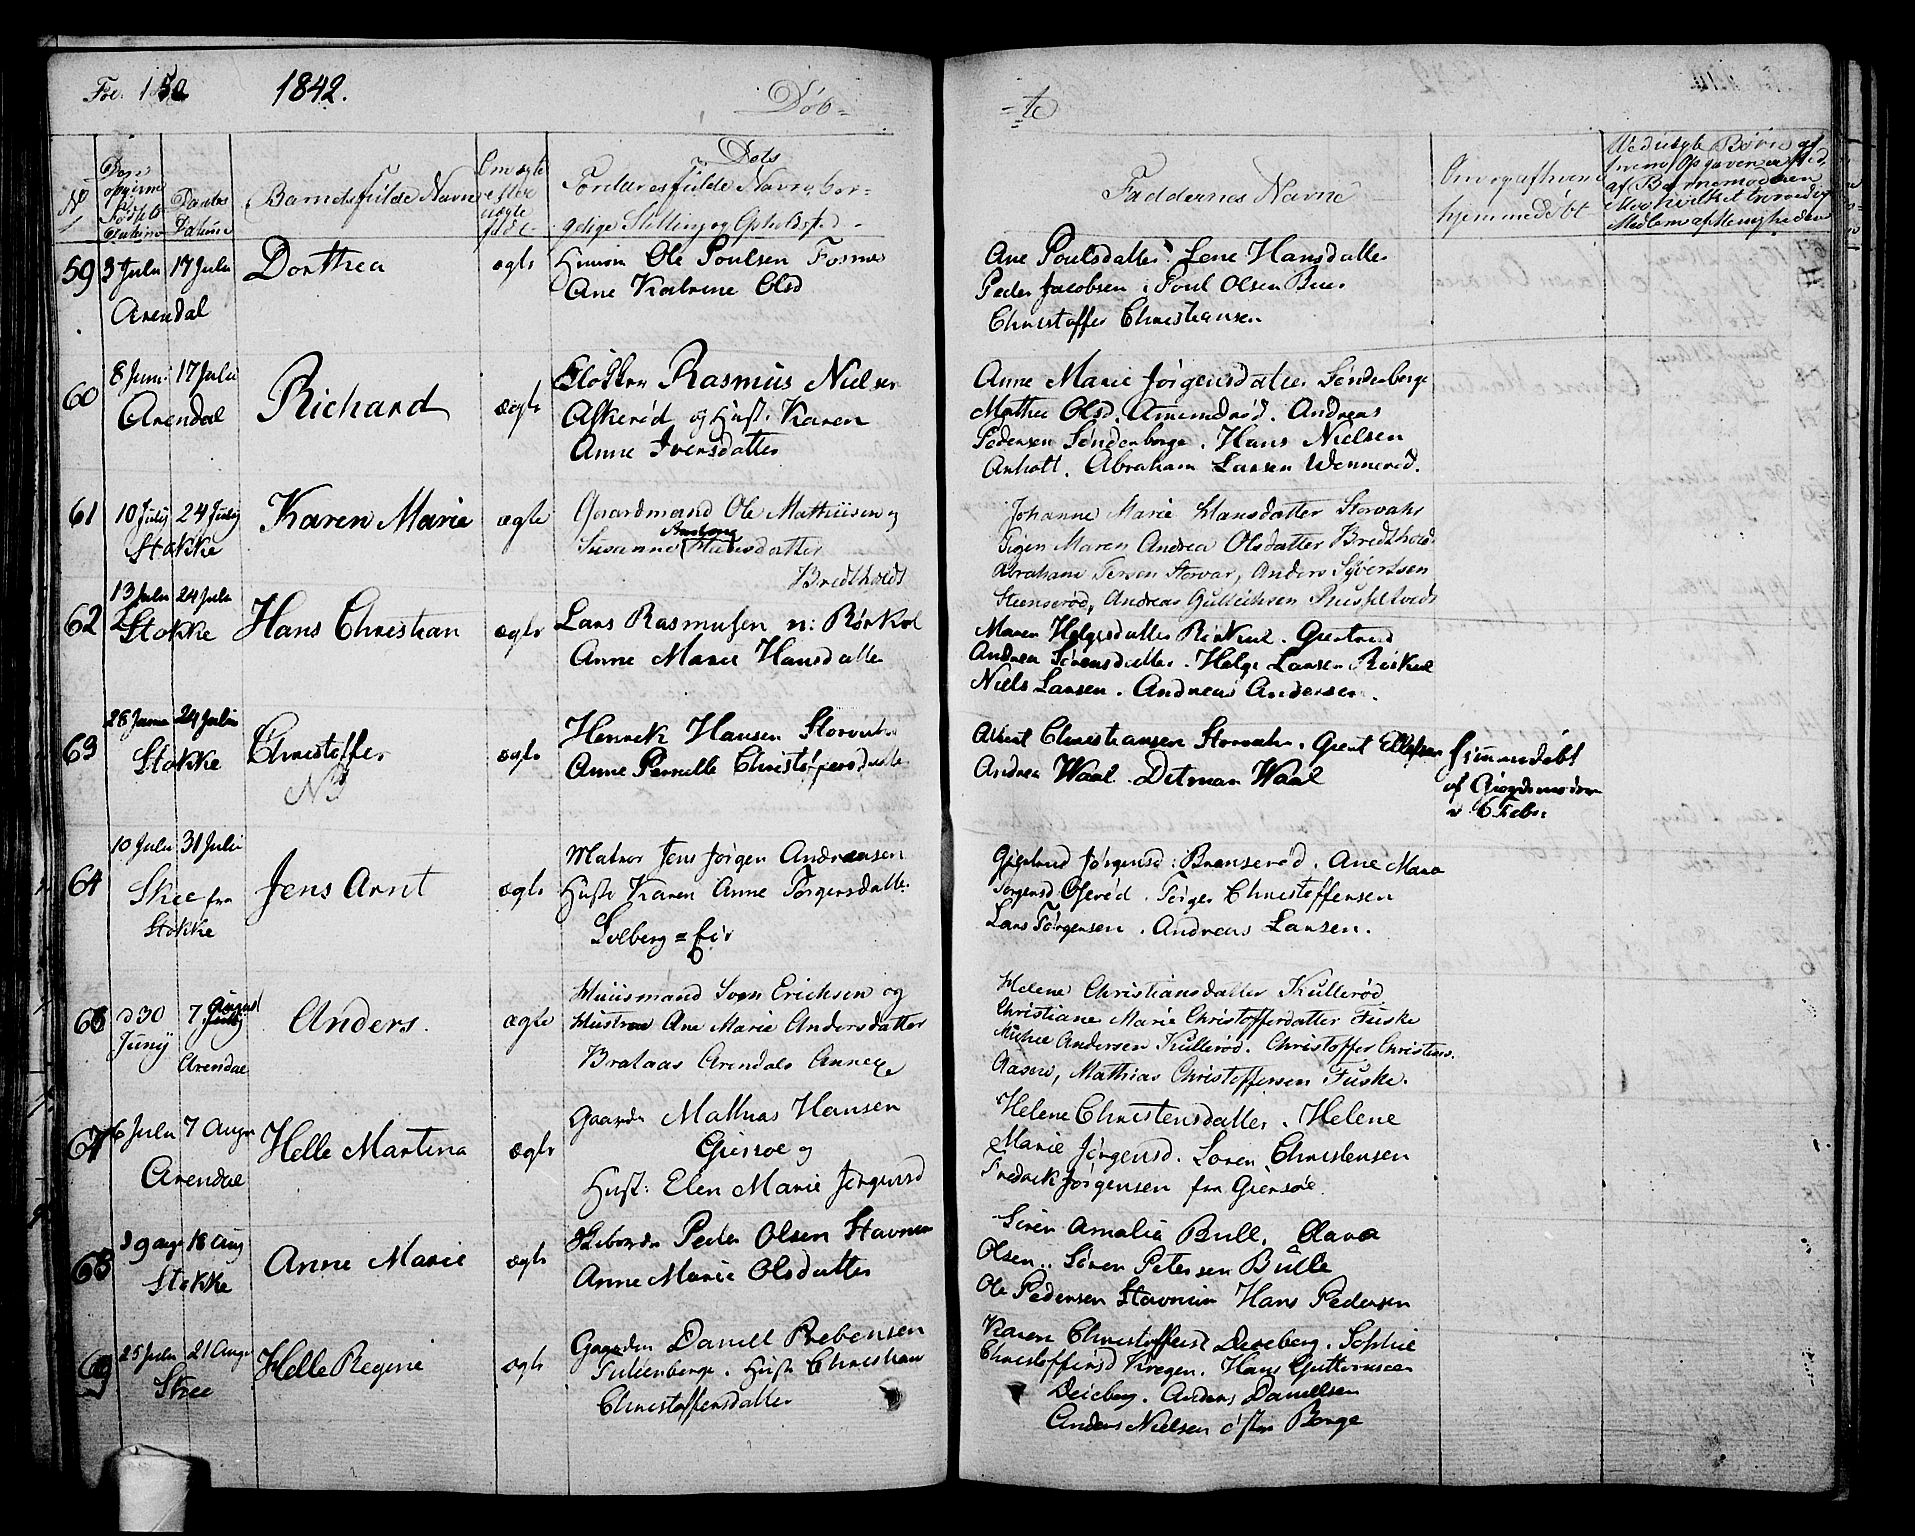 Fol. 152 1842. Døb-
-te
No
Daabs
Datum
Barnets fulde Navn
Dets
Forældres fulde Navn, bor-
gelige Stilling og Opholdssted
Faddernes Navne
hjemmedøbt
Medlem af Menigheden
59 3 Julii 17 Julii Dorthea ægte Huusm Ole Poulsen
Arendal
Ane Katrine Olsd
Ane Poulsdatter. Lene Hansdatter
Peder Jacobsen. Poul Olsen
Christoffer Christiansen
60 8 Juni 17 Julii Richard ægte Rasmus Nielsen
Arendal
Askerød og Hust. Karen
Anne Iversdatter
Anne Marie Jørgensdatter Sønderberge
Mathea Olsd. Amundrød. Andreas
Pedersen Sønderberge. Hans Nielsen
Anholt. Abraham Larsen Wennerød.
61 10 July 24 July Karen Marie ægte Gaardmand Ole Mathiisen og
Stokke
Susanne Hansdatter
Bredtholdt
Johanne Marie Hansdatter Storvahr
Pigen Maren Andrea Olsdatter Bredthold
Abraham Iversen Storvar, Anders Syvertsen
Steenserød, Andreas Gullichsen
62 13 Julii 24 Julii Hans Christian ægte Lars Rasmussen n: Rørkol
Stokke
Anne Marie Hansdatter
Maren Helgesdatter. Giertrud
Andrea Sørensdatter. Helge Larsen
Niels Larsen. Andreas Andersen.
63 28 Janu 24 Julii Christoffer ægte Henrik Hansen
Stokke
NB
Anne Pernille Christophersdatter
Albert Christiansen Storvahr. Gunt Ellefsen
Andrea Waal. Ditman Waal
hjemmedøbt
af Giordemoderen
d 6 Febr.
64 10 Julii 31 Julii Jens Arnt ægte Matros Jens Jørgen Andreasen
Skee fra
Stokke
Hustr Karen Anne Torgersdatter
Solberg = Eie
Giertrud Jørgensd: Brunserød. Ane Maria
Torgersd. Torger Christoffersen
Lars Torgersen. Andreas Larsen.
66 d 30
Juny
7 August
Arendal
Anders. ægte
Huusmand Sven Erichsen og
Hustrue Ane Marie Andersdatter
Brataas Arendals Annex
Helene Christiansdatter Kullerød
Christiane Marie Christoffersdatter Fuske
Michel Andersen Kullerød. Christoffer Christens.
Aaserø, Mathias Christoffersen Fuske.
67 6 Julii 7 Augu Helle Martina ægte Gaardm Mathias Hansen
Arendal
Giersøe og
Hust: Elen Marie Jørgensd
Helene Christensdatter. Helene
Marie Jørgensd. Soren Christensen
Fredrik Jørgensen fra Giersøe
68 d 9 Augu 18 Aug Anne Marie ægte Peder Olsen Stavnum
Stokke
Anne Marie Olsdatter
Siren Amalia Bull. Clara
Olsen. Søren Petersen Bülle
Ole Pedersen Stavnum Hans Pedersen
69 25 Julii 21 Augu Helle Regine ægte Gaardm Daniel Prebensen
Skee
Hustr Christiane
Christoffersdatter
Karen Christoffersd. Sophie
Christoffersd. Hans Guttormsen
Anders Danielsen
Anders Nielsen østre Berge